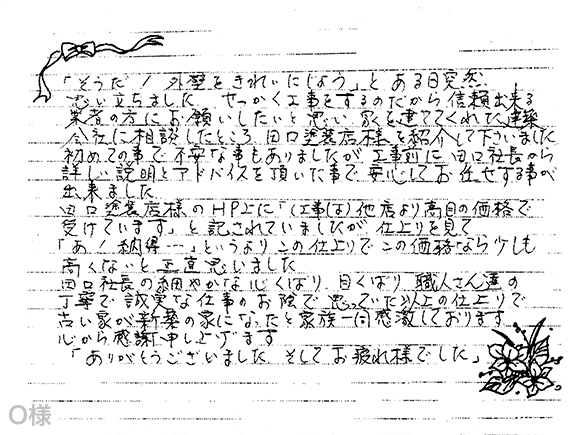 「そうだ！外壁をきれいにしよう」と ある日突然
思い立ちました せっかく工事をするのだから信頼出来る
業者の方にお願いしたいと思い 家を建ててくれた建築
会社に相談したところ 田口塗装店様を紹介して下さいました
初めての事で不安な事もありましたが 工事前に田口社長から
詳しい説明とアドバイスを頂いた事で安心してお任せする事が
出来ました
田口塗装店様のHP上に「(工事は)他店より高目の価格で
受けています」と記されていましたが 仕上りを見て
「あ！納得…」というよりこの仕上りでこの価格なら少しも
高くないと正直思いました
田口社長の細やかな心くばり 目くばり 職人さん達の
丁寧で誠実な仕事のお陰で 思っていた以上の仕上りで
古い家が新築の家になったと家族一同感激しております
心から感謝申し上げます
「ありがとうございました そして お疲れ様でした」
O様